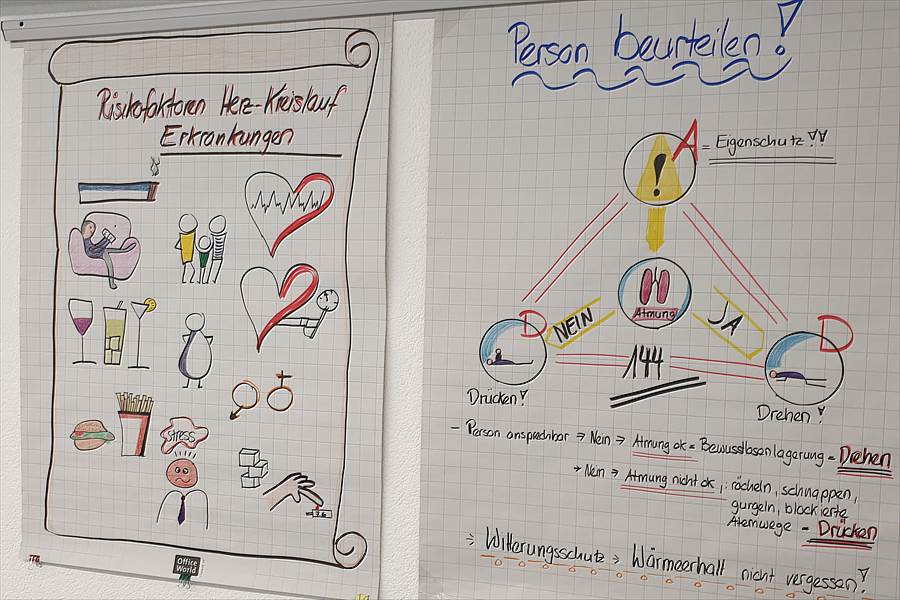 Risikofaktoren Herz-Kreislauf
Erkrankungen
Stress
Office
World
Person beurteilen!
A = Eigenschutz!!
Atmung
D
NEIN
JA
D
144
Drücken!
Drehen!
- Person ansprechbar → Nein → Atmung ok = Bewusstlosenlagerung = Drehen
→ Nein → Atmung nicht ok, : röcheln, schnappen,
gurgeln, blockierte
Atemwege = Drücken
Witterungsschutz → Wärmeerhalt nicht vergessen!